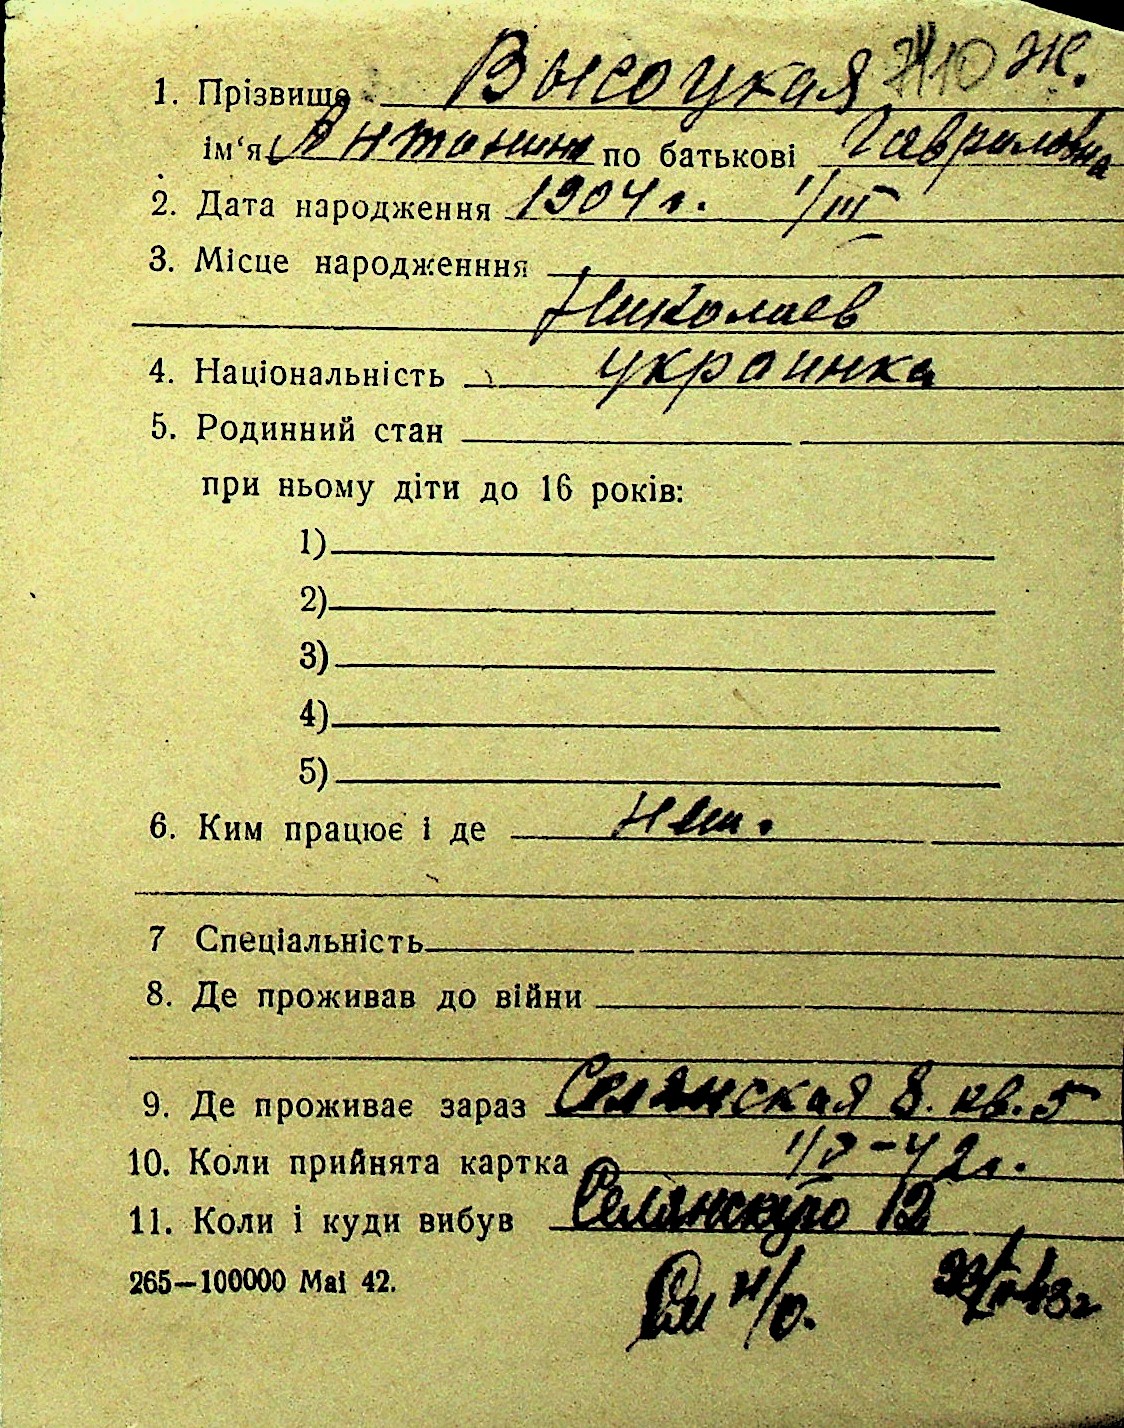 1. Прізвище Высоцкая Ж.
ім‘я Антонина по батькові Гавриловна
2. Дата народження 1904 г. 1/III
3. Місце народженння
Николаев
4. Національність украинка
5. Родинний стан
при ньому діти до 16 років:
1)
2)
3)
4)
5)
6. Ким працює і де нет.
7 Спеціальність
8. Де проживав до війни
9. Де проживає зараз Селянская 8. кв. 5
10. Коли прийнята картка
11. Коли і куди вибув Селянскую 12
265—100000 Mai 42.
См н/о.